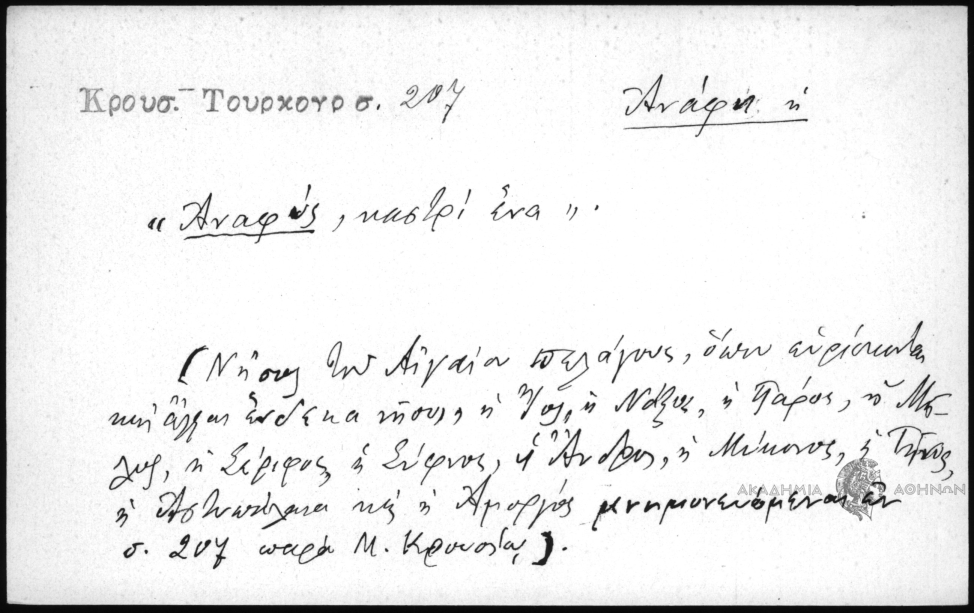 Κρουσ. Τουρκογρ σ. 207
Ἀνάφη ἡ
“ Ἀναφὺς, καστρί ἕνα ” .
(Νῆσος τοῦ Αἰγαίου πελάγους, ὅπου εὑρίσκονται
καὶ ἄλλαι ἕνδεκα νῆσοι, ἡ Ἴος, ἡ Νάξος, ἡ Πάρος, ἡ Μῆ-
λος, ἡ Σέριφος, ἡ Σίφνος, ἡ Ἄνδρος, ἡ Μύκονος, ἡ Τῆνος,
ἡ Ἀστυπάλαια καὶ ἡ Ἀμοργός μνημονευόμεναι ἐν
σ. 207 παρὰ Μ. Κρουσίῳ).
ΑΚΑΔΗΜΙΑ ΑΘΗΝΩΝ